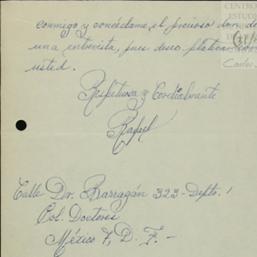 conmigo y concédame, el precioso don de
una entrevista, pues deseo platicar con
usted.
Respetuosa y Cordialmente
Rafael
Calle Dr. Barragán 323-Depto. 1
Col. Doctores
México 7, D. F. -
CENTRO
ESTUD
Carlos